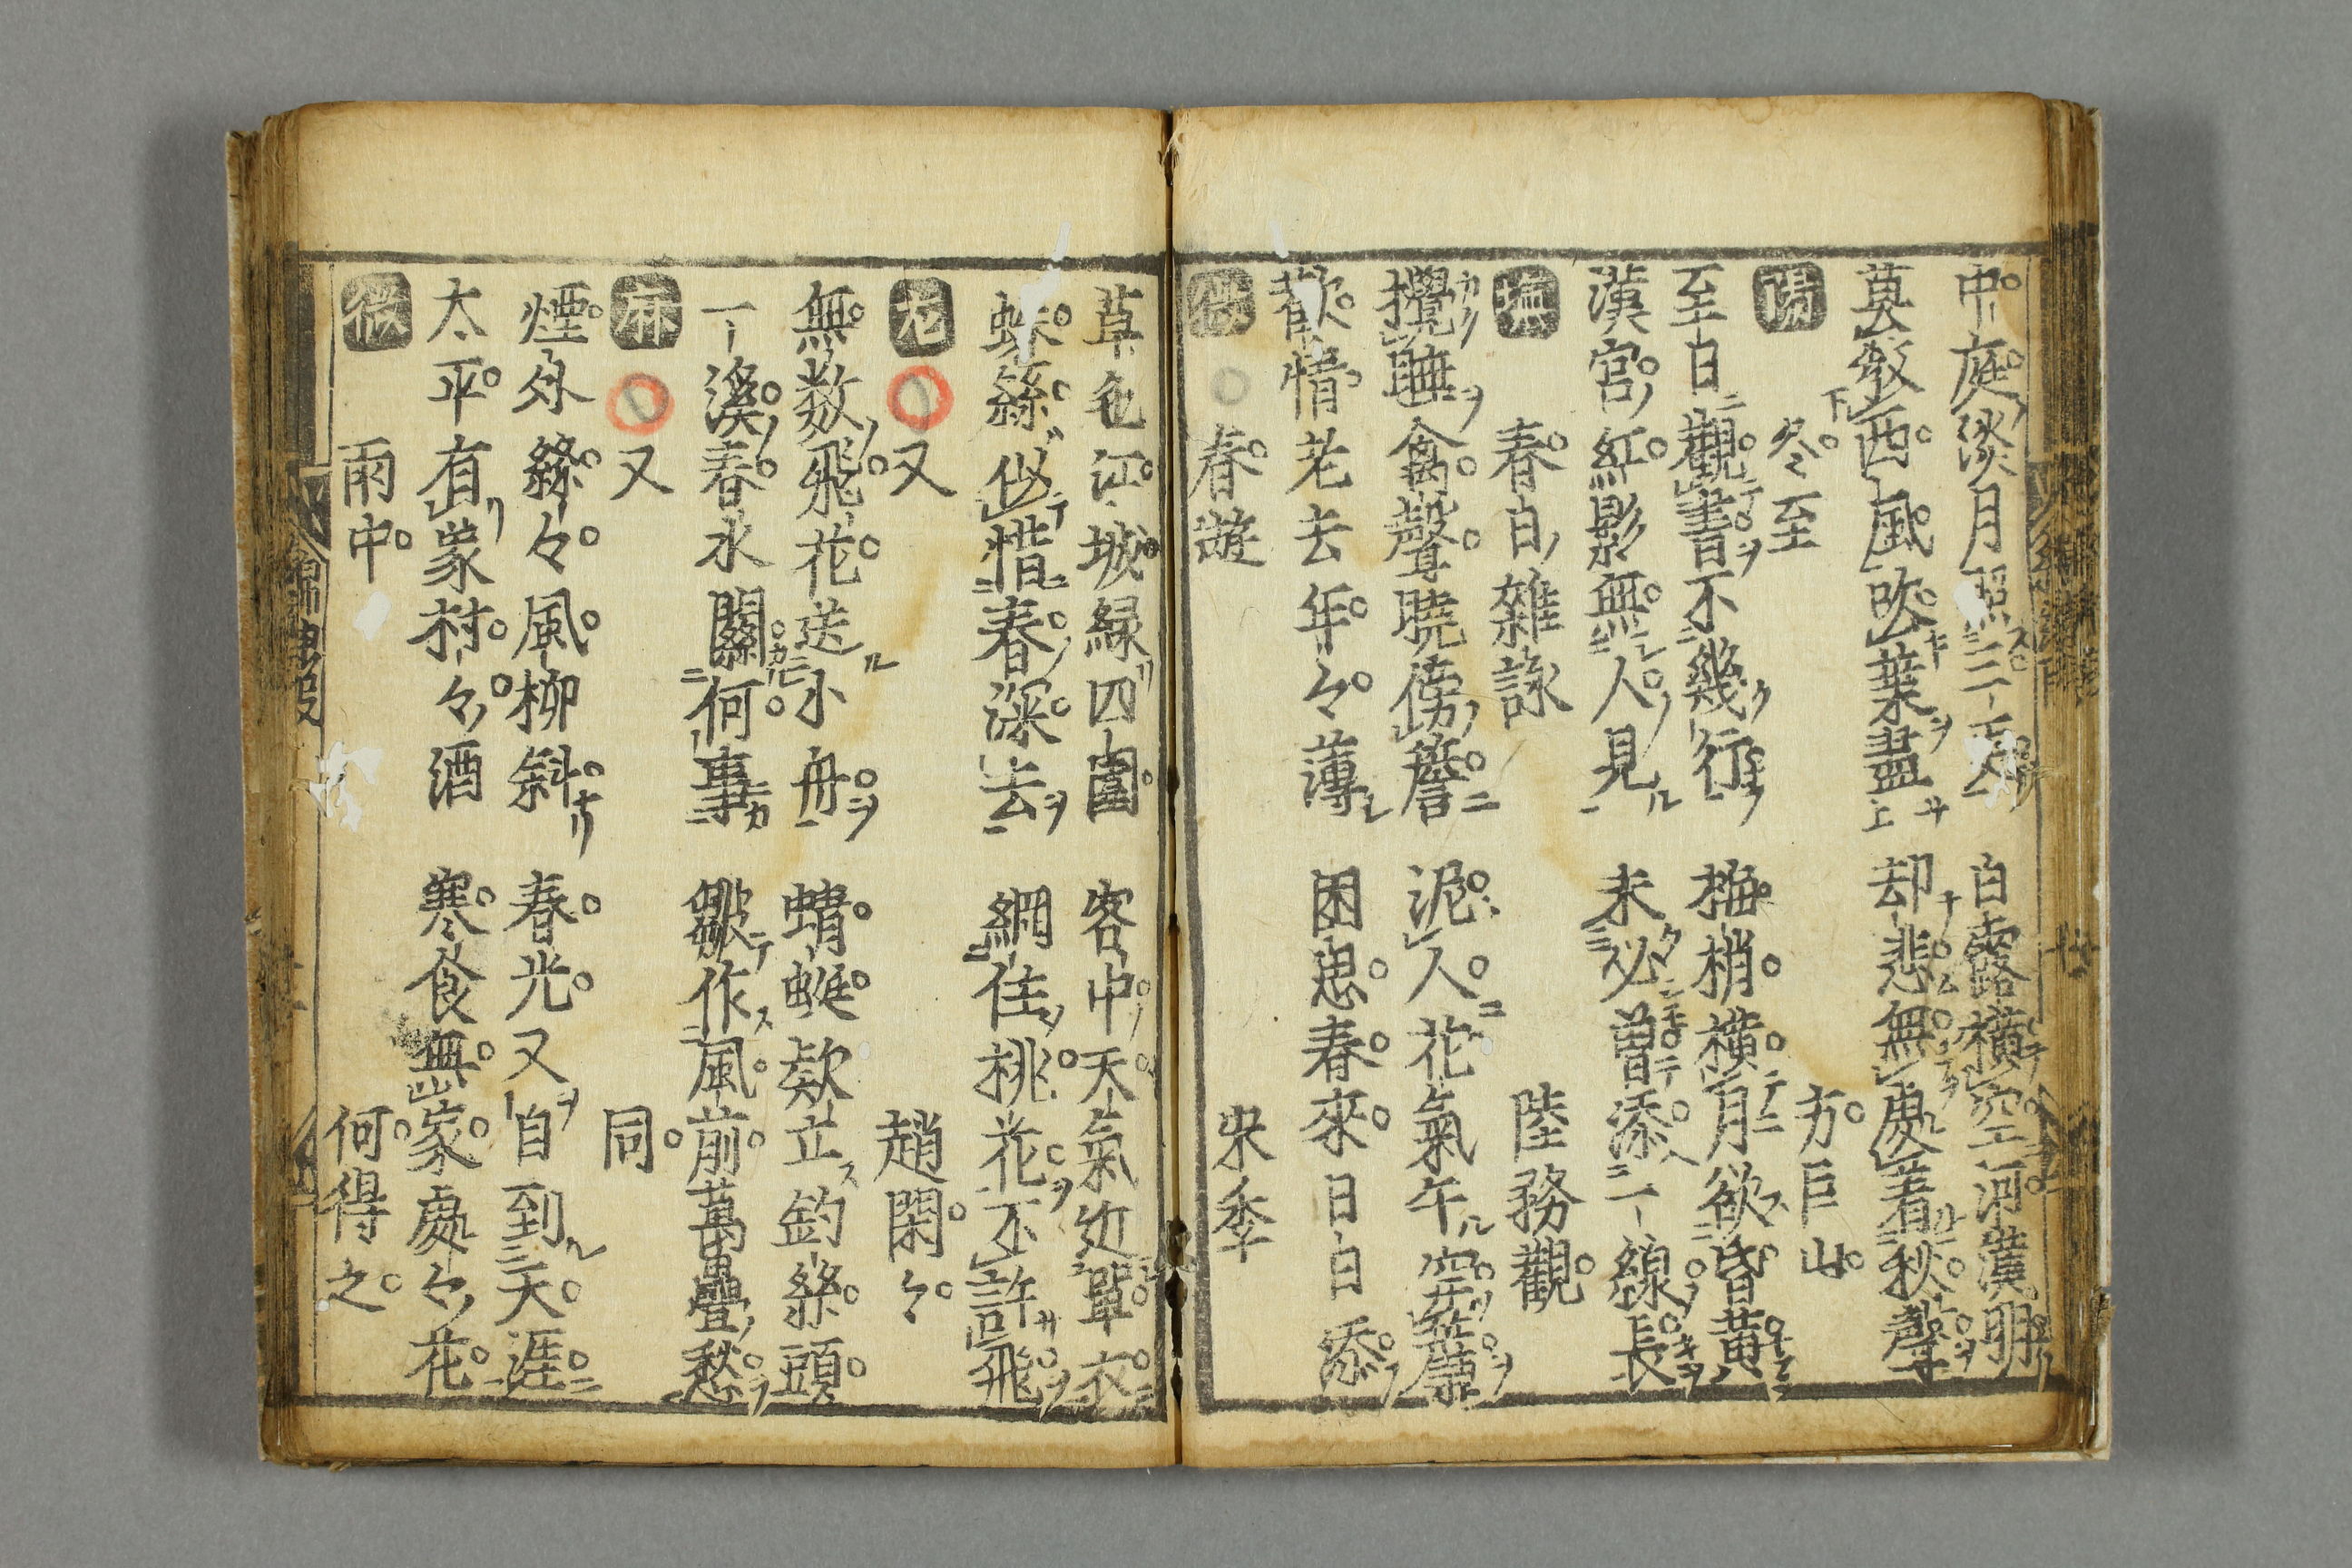 中庭淡月照三更 白露橫空河漢明
莫敎西風吹葉盡 却悲無處著秋聲
陽 冬至 方巨山
至日觀書不幾行 梅梢橫月欲昏黃
漢宮紅影無人見 未必曾添一線長
塩 春日雜詠 陸務觀
攪睡禽聲曉傍簷 泥人花氣午穿簾
歡情老去年々薄 困思春來日日添
微 春遊 宋季
草色江城綠四圍 客中天氣近單衣
蛛絲似惜春深去 網住桃花不許飛
尤 又 趙閑々
無数飛花送小舟 蜻蜓欸立釣絲頭
一溪春水關何事 皺作風前萬疊愁
麻 又 同
煙外絲々風柳斜 春光又自到天涯
太平有象村々酒 寒食無家處々花
微 雨中 何得之